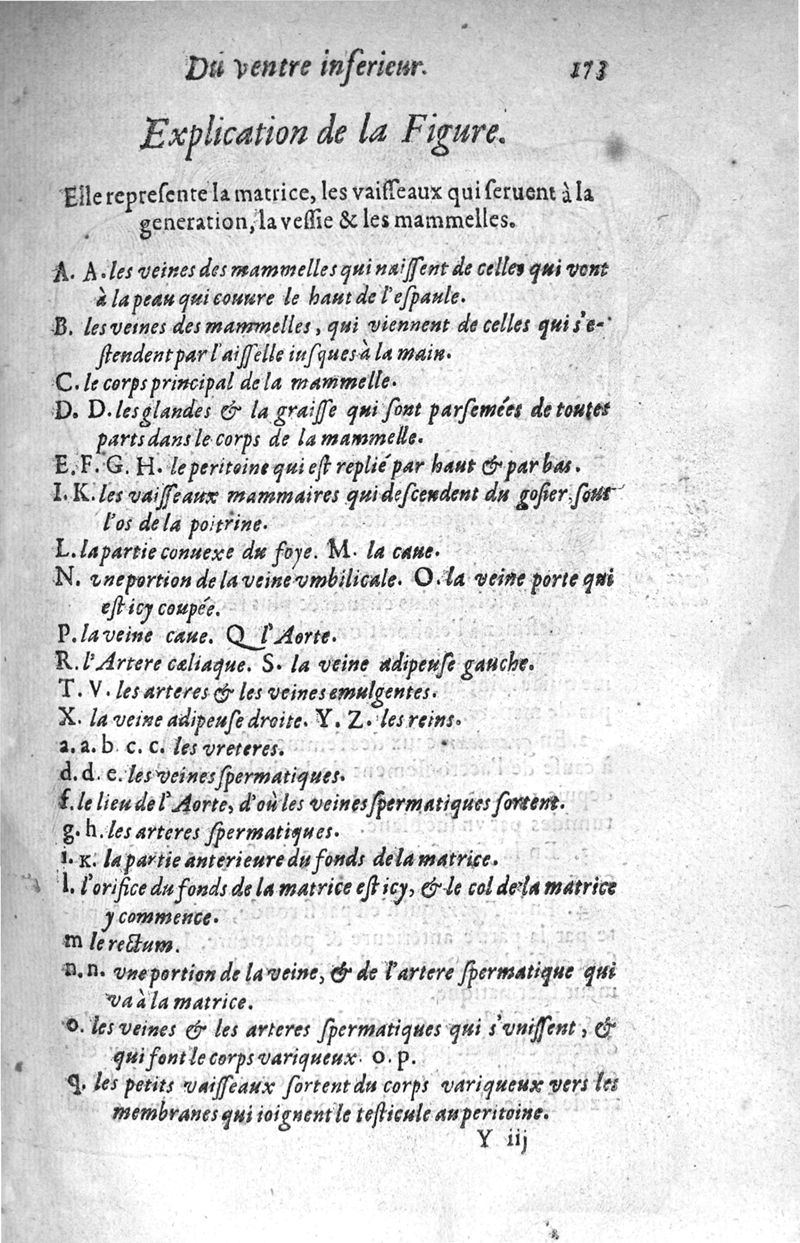 Du ventre inferieur. 173
Explication de la Figure.
Elle represente la matrice, les vaisſeaux qui ſeruent à la
generation, la veſſie & les mammelles.
A. A. les veines des mammelles qui naiſſent de celles qui vont
à la peau qui couure le haut de l'eſpaule.
B. les veines des mammelles, qui viennent de celles qui s'e-
ſtendent par l'aiſſelle iuſques à la main.
C. le corps principal de la mammelle.
D. D. les glandes & la graiſſe qui ſont parſemées de toutes
parts dans le corps de la mammelle.
E. F. G. H. le peritoine qui eſt replié par haut & par bas.
I. K. les vaiſſeaux mammaires qui deſcendent du goſier ſous
l'os de la poitrine.
L. la partie conuexe du foye. M. la caue.
N. vne portion de la veine vmbilicale. O. la veine porte qui
eſt icy coupée.
P. la veine caue. Q l'Aorte.
R. l'Artere cæliaque. S. la veine adipeuſe gauche.
T. V. les arteres & les veines emulgentes.
X. la veine adipeuſe droite. Y. Z. les reins.
a. a. b c. c. les vreteres.
d. d e. les veines ſpermatiques.
f. le lieu de l'Aorte, d'où les veines ſpermatiques ſortent.
g. h. les arteres ſpermatiques.
i. K. la partie anterieure du fonds de la matrice.
l. l'orifice du fonds de la matrice eſt icy, & le col de la matrice
y commence.
m le rectum.
n. n. vne portion de la veine, & de l'artere ſpermatique qui
va à la matrice.
o. les veines & les arteres ſpermatiques qui s'vniſſent, &
qui font le corps variqueux. o. p.
q. les petits vaiſſeaux ſortent du corps variqueux vers les
membranes qui ioignent le teſticule au peritoine.
Y iij